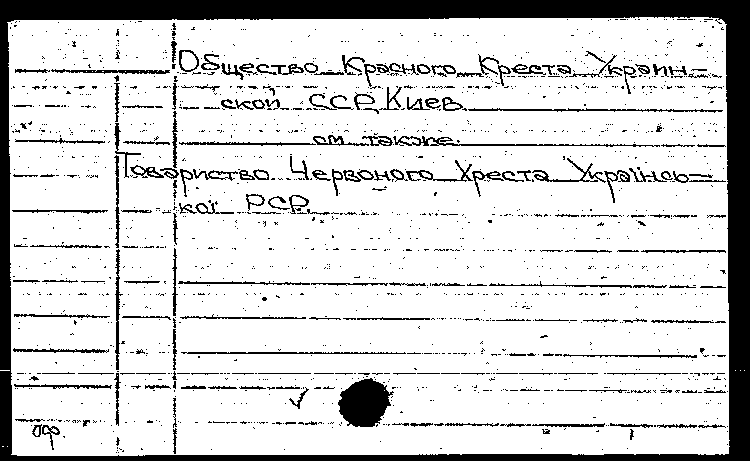 Общество Красного Креста Украин-
ской ССР, Киев.
см. также:
Товариство Червоного Хреста Українсь-
кої РСР.